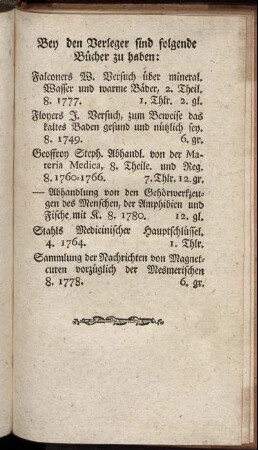 Bey den Verleger sind folgende
Bücher zu haben:
Falconers W. Versuch über mineral.
Wasser und warme Bäder, 2. Theil.
8. 1777. 1. Thlr. 2. gl.
Floyers J. Versuch, zum Beweise das
kaltes Baden gesund und nützlich sey.
8. 1749. 6. gr.
Geoffroy Steph. Abhandl. von der Ma-
teria Medica, 8. Theile. und Reg.
8. 1760-1766. 7. Thlr. 12. gr.
— Abhandlung von den Gehörwerkzeu-
gen des Menschen, der Amphibien und
Fische, mit K. 8. 1780. 12. gl.
Stahls Medicinischer Hauptschlüssel.
4. 1764. 1. Thlr.
Sammlung der Nachrichten von Magnet-
curen vorzüglich der Mesmerischen
8. 1778. 6. gr.